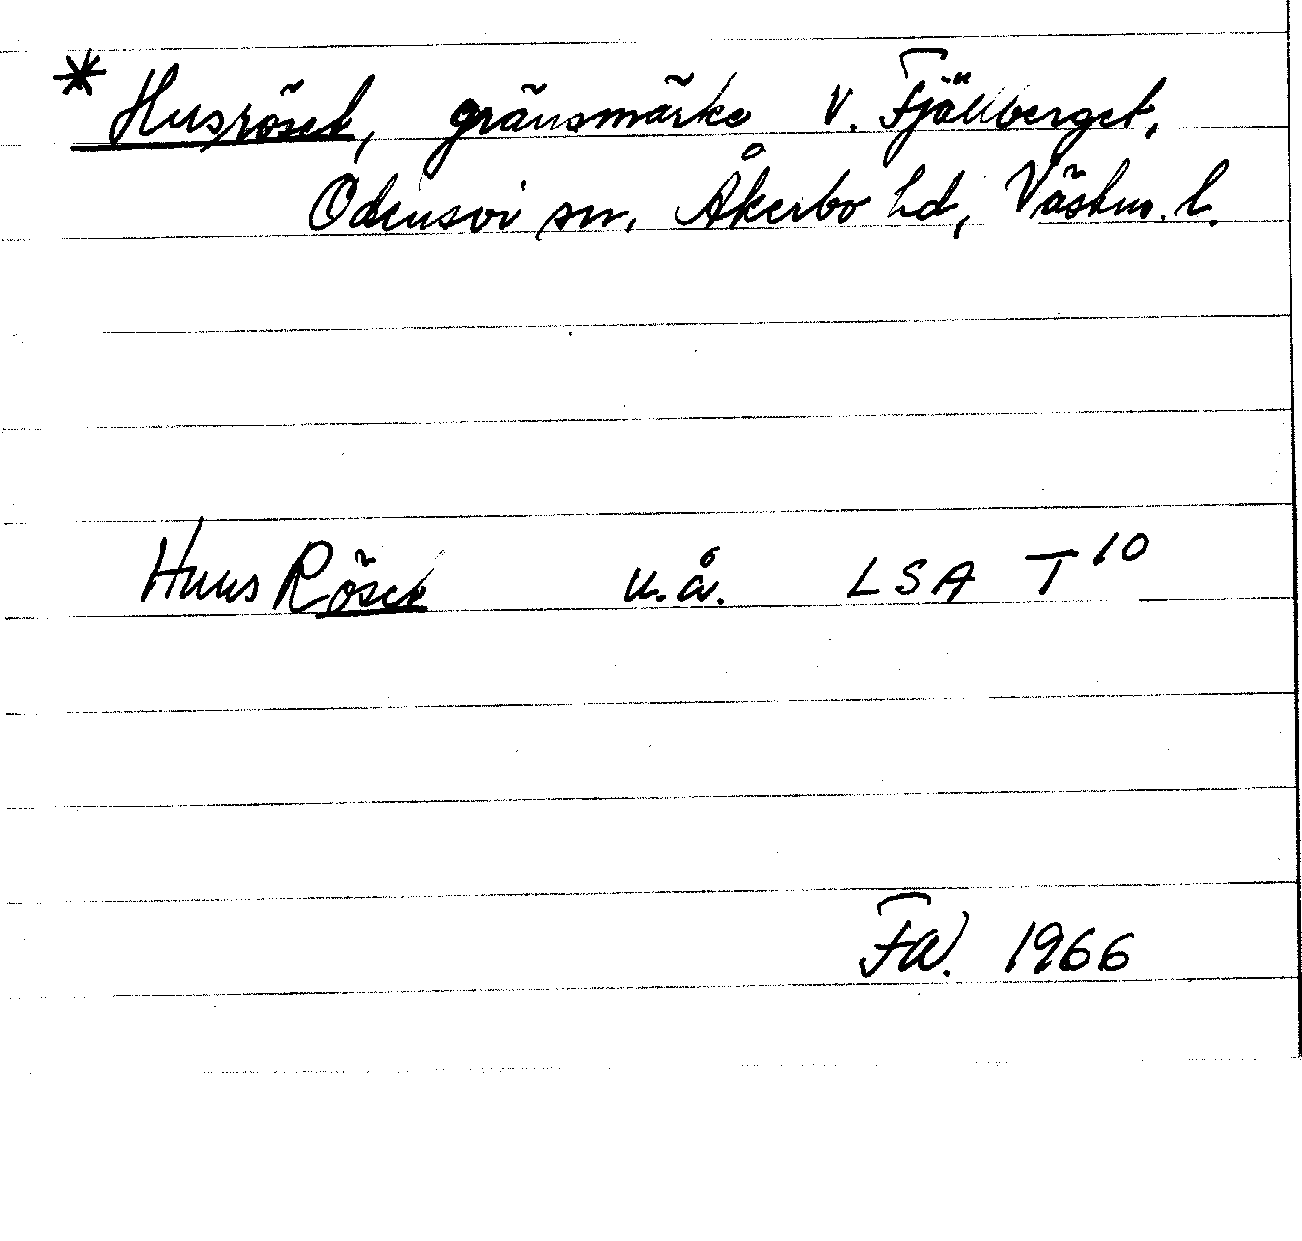 * Husröset, gränsmärke v. Fjällberget,
Odensvi sn, Åkerbo hd, Västm. l.
Huus Röset u.å. LSA T 10
FW. 1966